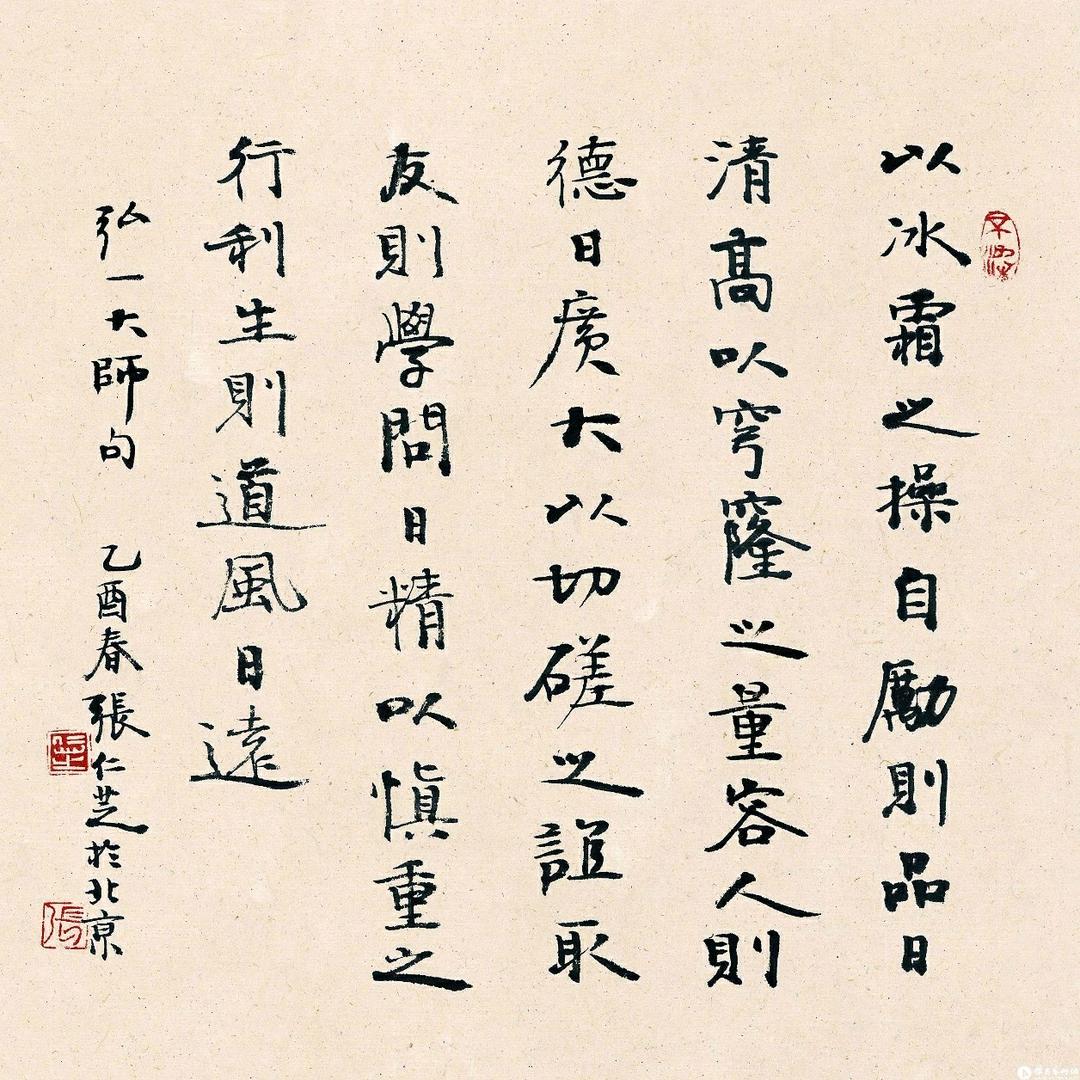 以冰霜之操自勵則品日
清高以穹窿之量容人則
德日廣大以切磋之誼取
友則學問日精以慎重之
行利生則道風日遠
弘一大師句 乙酉春張仁芝於北京